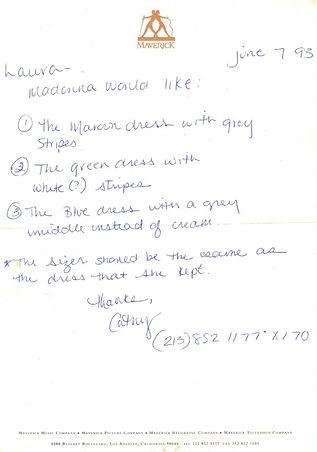 MAVERICK
June 7 93
Laura-
Madonna would like:
① The Maroon dress with grey
stripes
② The green dress with
white (?) stripes
③ The Blue dress with a grey
middle instead of cream.
* The sizes should be the same as
the dress that she kept.
Thanks,
Cathy
(213) 852 1177 X170
MAVERICK MUSIC COMPANY • MAVERICK PICTURE COMPANY • MAVERICK RECORDING COMPANY • MAVERICK TELEVISION COMPANY
BEVERLY BOULEVARD, LOS ANGELES, CALIFORNIA 90048 TEL 213 852 1177 FAX 213 852 1505